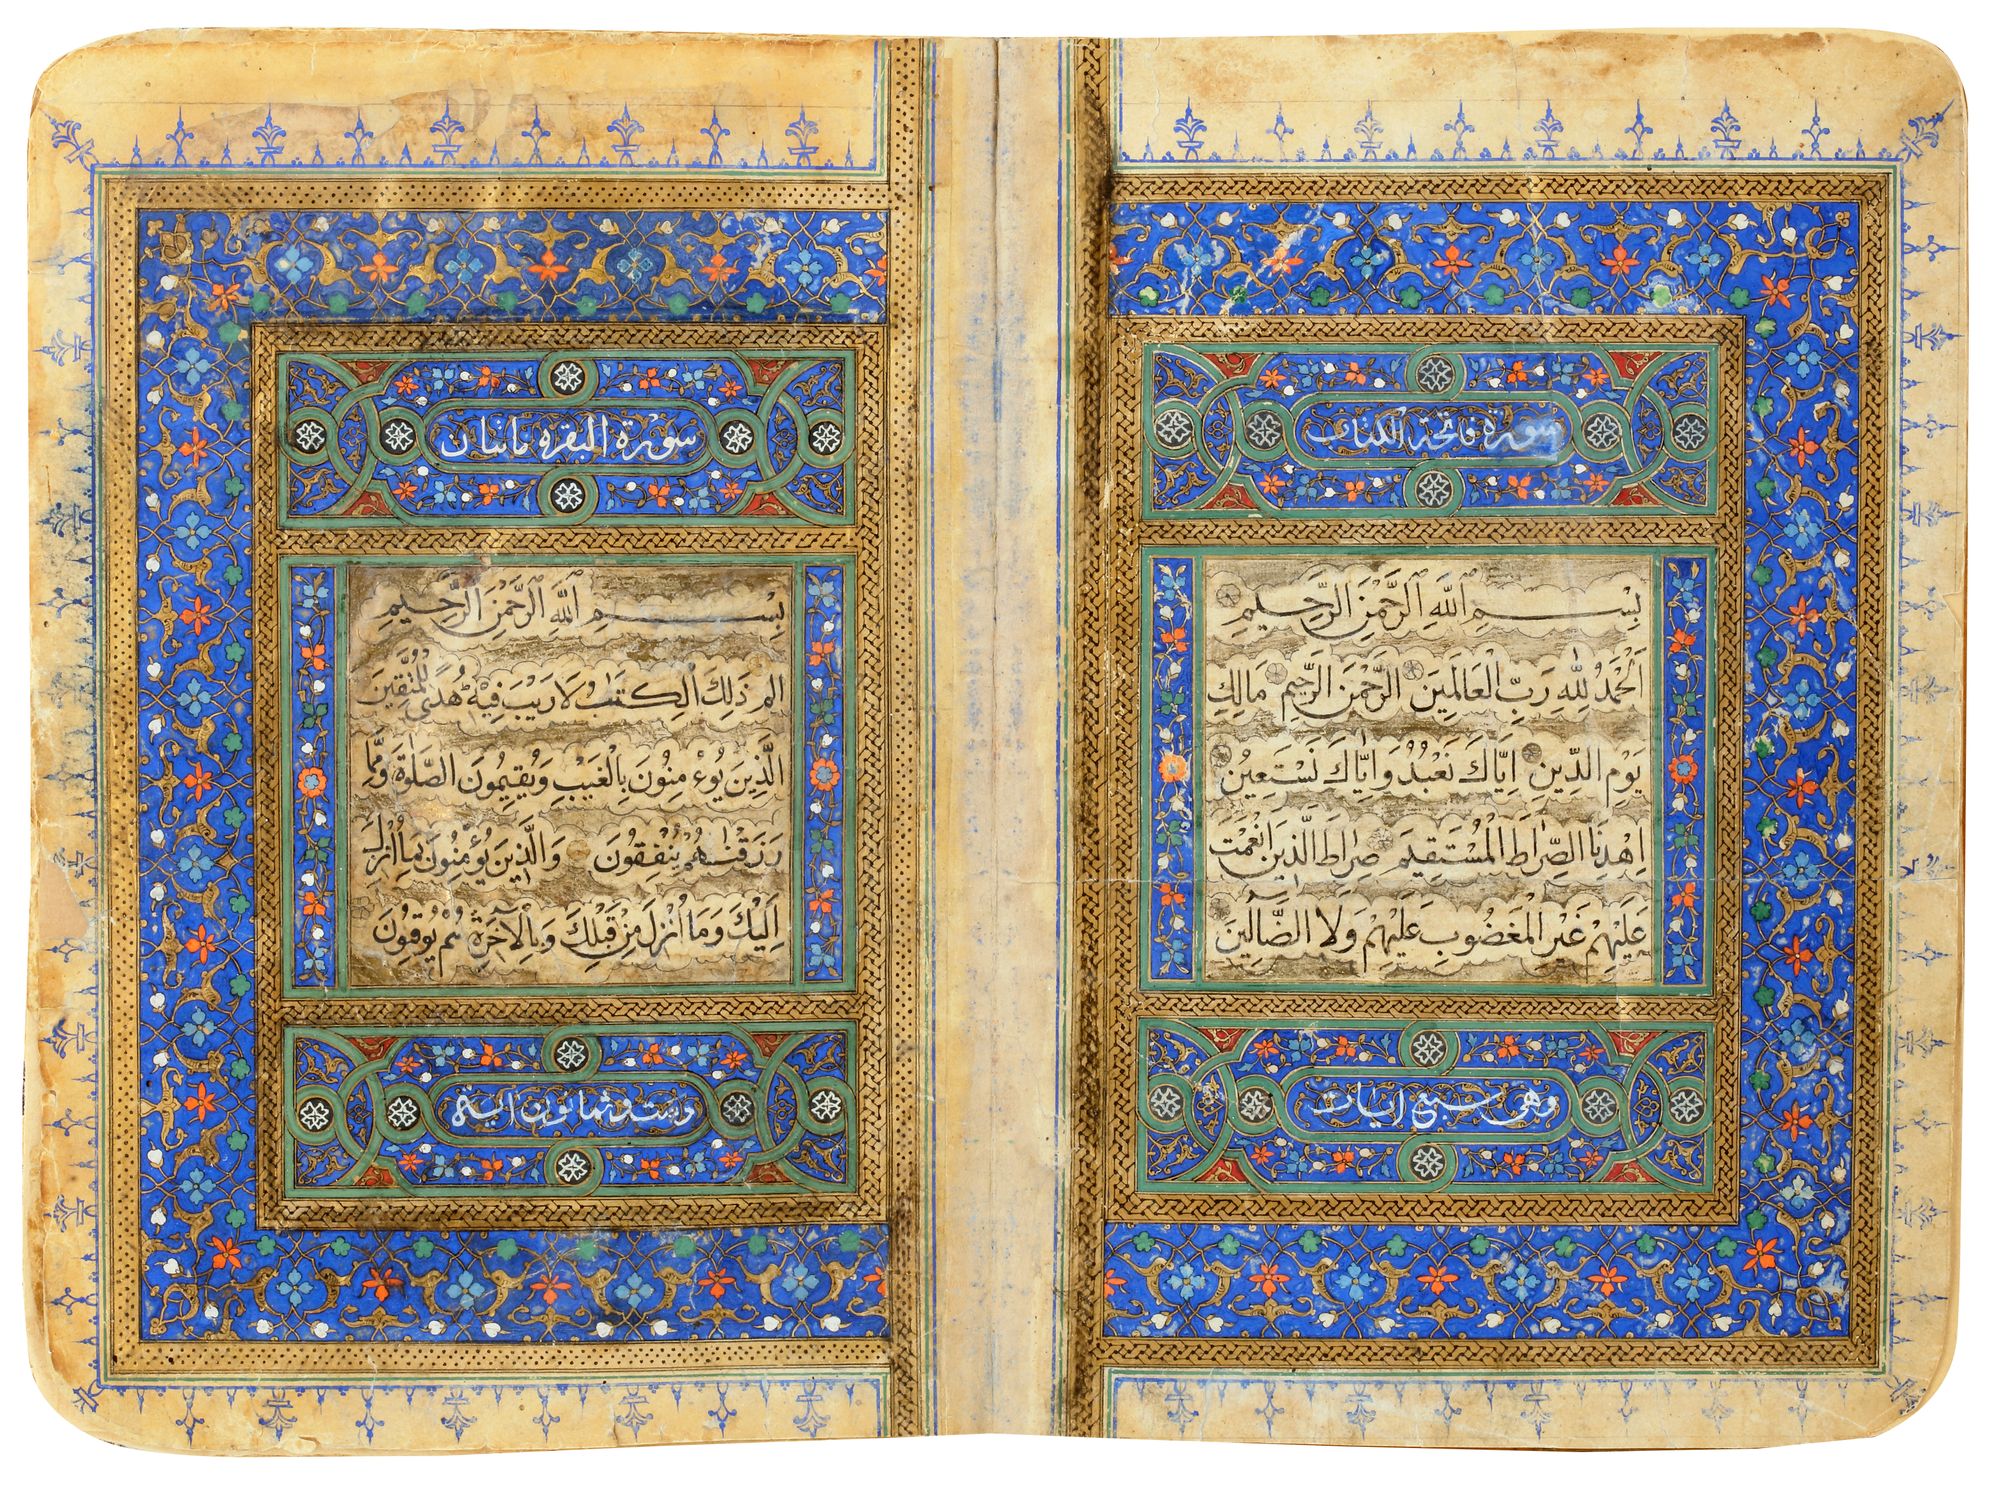 سورة فاتحة الكتاب
بِسْمِ اللهِ الرَّحْمٰنِ الرَّحِيمِ
اَلْحَمْدُ لِلّٰهِ رَبِّ الْعَالَمِينَ الرَّحْمٰنِ الرَّحِيمِ مَالِكِ
يَوْمِ الدِّينِ اِيَّاكَ نَعْبُدُ وَاِيَّاكَ نَسْتَعِينُ
اِهْدِنَا الصِّرَاطَ الْمُسْتَقِيمَ صِرَاطَ الَّذِينَ اَنْعَمْتَ
عَلَيْهِمْ غَيْرِ الْمَغْضُوبِ عَلَيْهِمْ وَلَا الضَّآلِّينَ
وهى سبع ايات
سورة البقره مائتان
بِسْمِ اللهِ الرَّحْمٰنِ الرَّحِيمِ
الم ذٰلِكَ الْكِتَابُ لَا رَيْبَ فِيهِ هُدًى لِلْمُتَّقِينَ
الَّذِينَ يُؤْمِنُونَ بِالْغَيْبِ وَيُقِيمُونَ الصَّلٰوةَ وَمِمَّا
رَزَقْنَاهُمْ يُنْفِقُونَ وَالَّذِينَ يُؤْمِنُونَ بِمَا اُنْزِلَ
اِلَيْكَ وَمَا اُنْزِلَ مِنْ قَبْلِكَ وَبِالْآخِرَةِ هُمْ يُوقِنُونَ
وست وثمانون اية